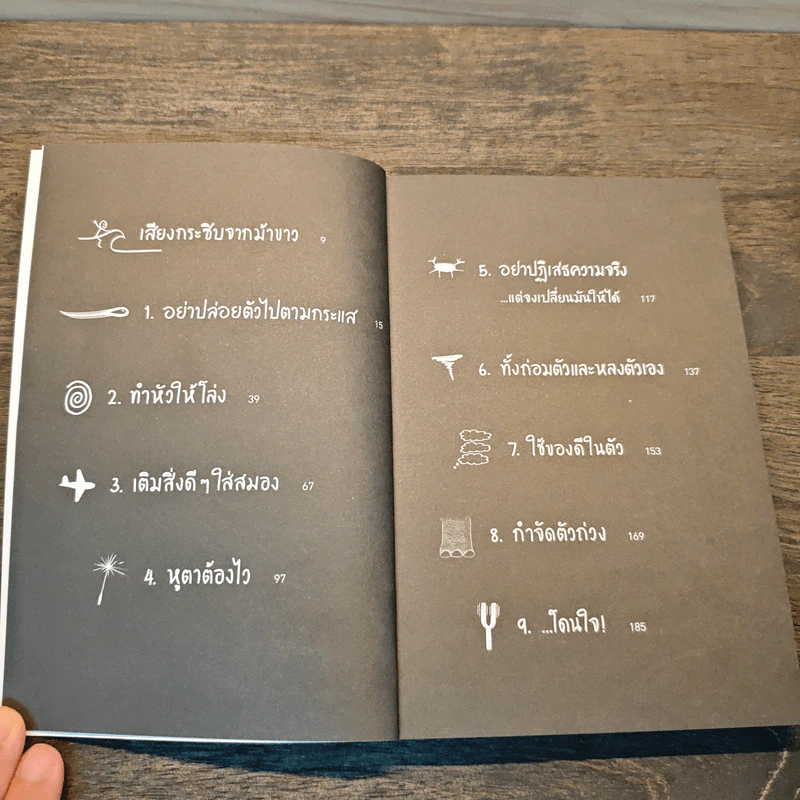 เสียงกระซิบจากม้าขาว 9
1. อย่าปล่อยตัวไปตามกระแส 15
2. ทำหัวให้โล่ง 39
3. เติมสิ่งดีๆใส่สมอง 67
4. หูตาต้องไว 97
5. อย่าปฏิเสธความจริง
...แต่จงเปลี่ยนมันให้ได้ 117
6. ทั้งถ่อมตัวและหลงตัวเอง 137
7. ใช้ของดีในตัว 153
8. กำจัดตัวถ่วง 169
9. ...โดนใจ! 185